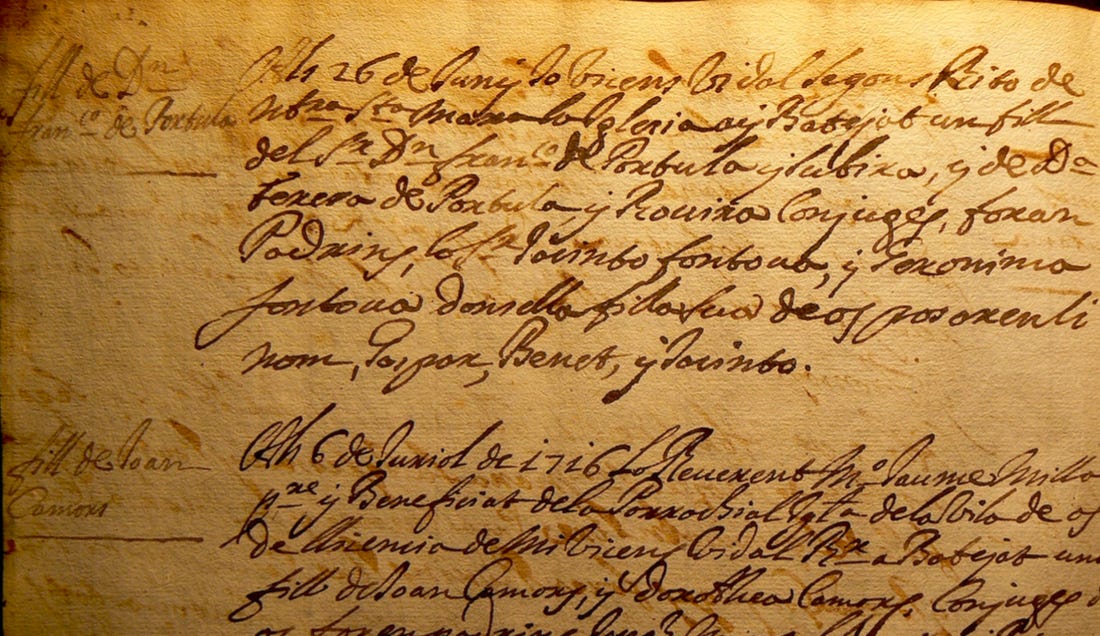 fill de Dn
Fran.co de Portula
Als 26 de Juny Jo Vicens Vidal segons Rito de
Ntra Sta Mara la Iglesia ay Batejat un fill
del Sr Dn Fran.co de Portula y Lubira, y de Da
teresa de Portula y Rovira Conjuges, foran
Padrins, lo Sr Jacinto fontova, y Geronima
fontova donsella filla sua de os posarenli
nom, Gaspar, Benet, y Jacinto.
fill de Joan
Camors
Als 6 de Juriol de 1716 Lo Reverent Mo Jaume Milla
pre y Beneficiat de la Parrochial Igta de la Vila de os
de llisencia de Mi Vicens Vidal Rr a Batejat un
fill de Joan Camors, y Dorothea Camors, Conjuges
os foren padrins